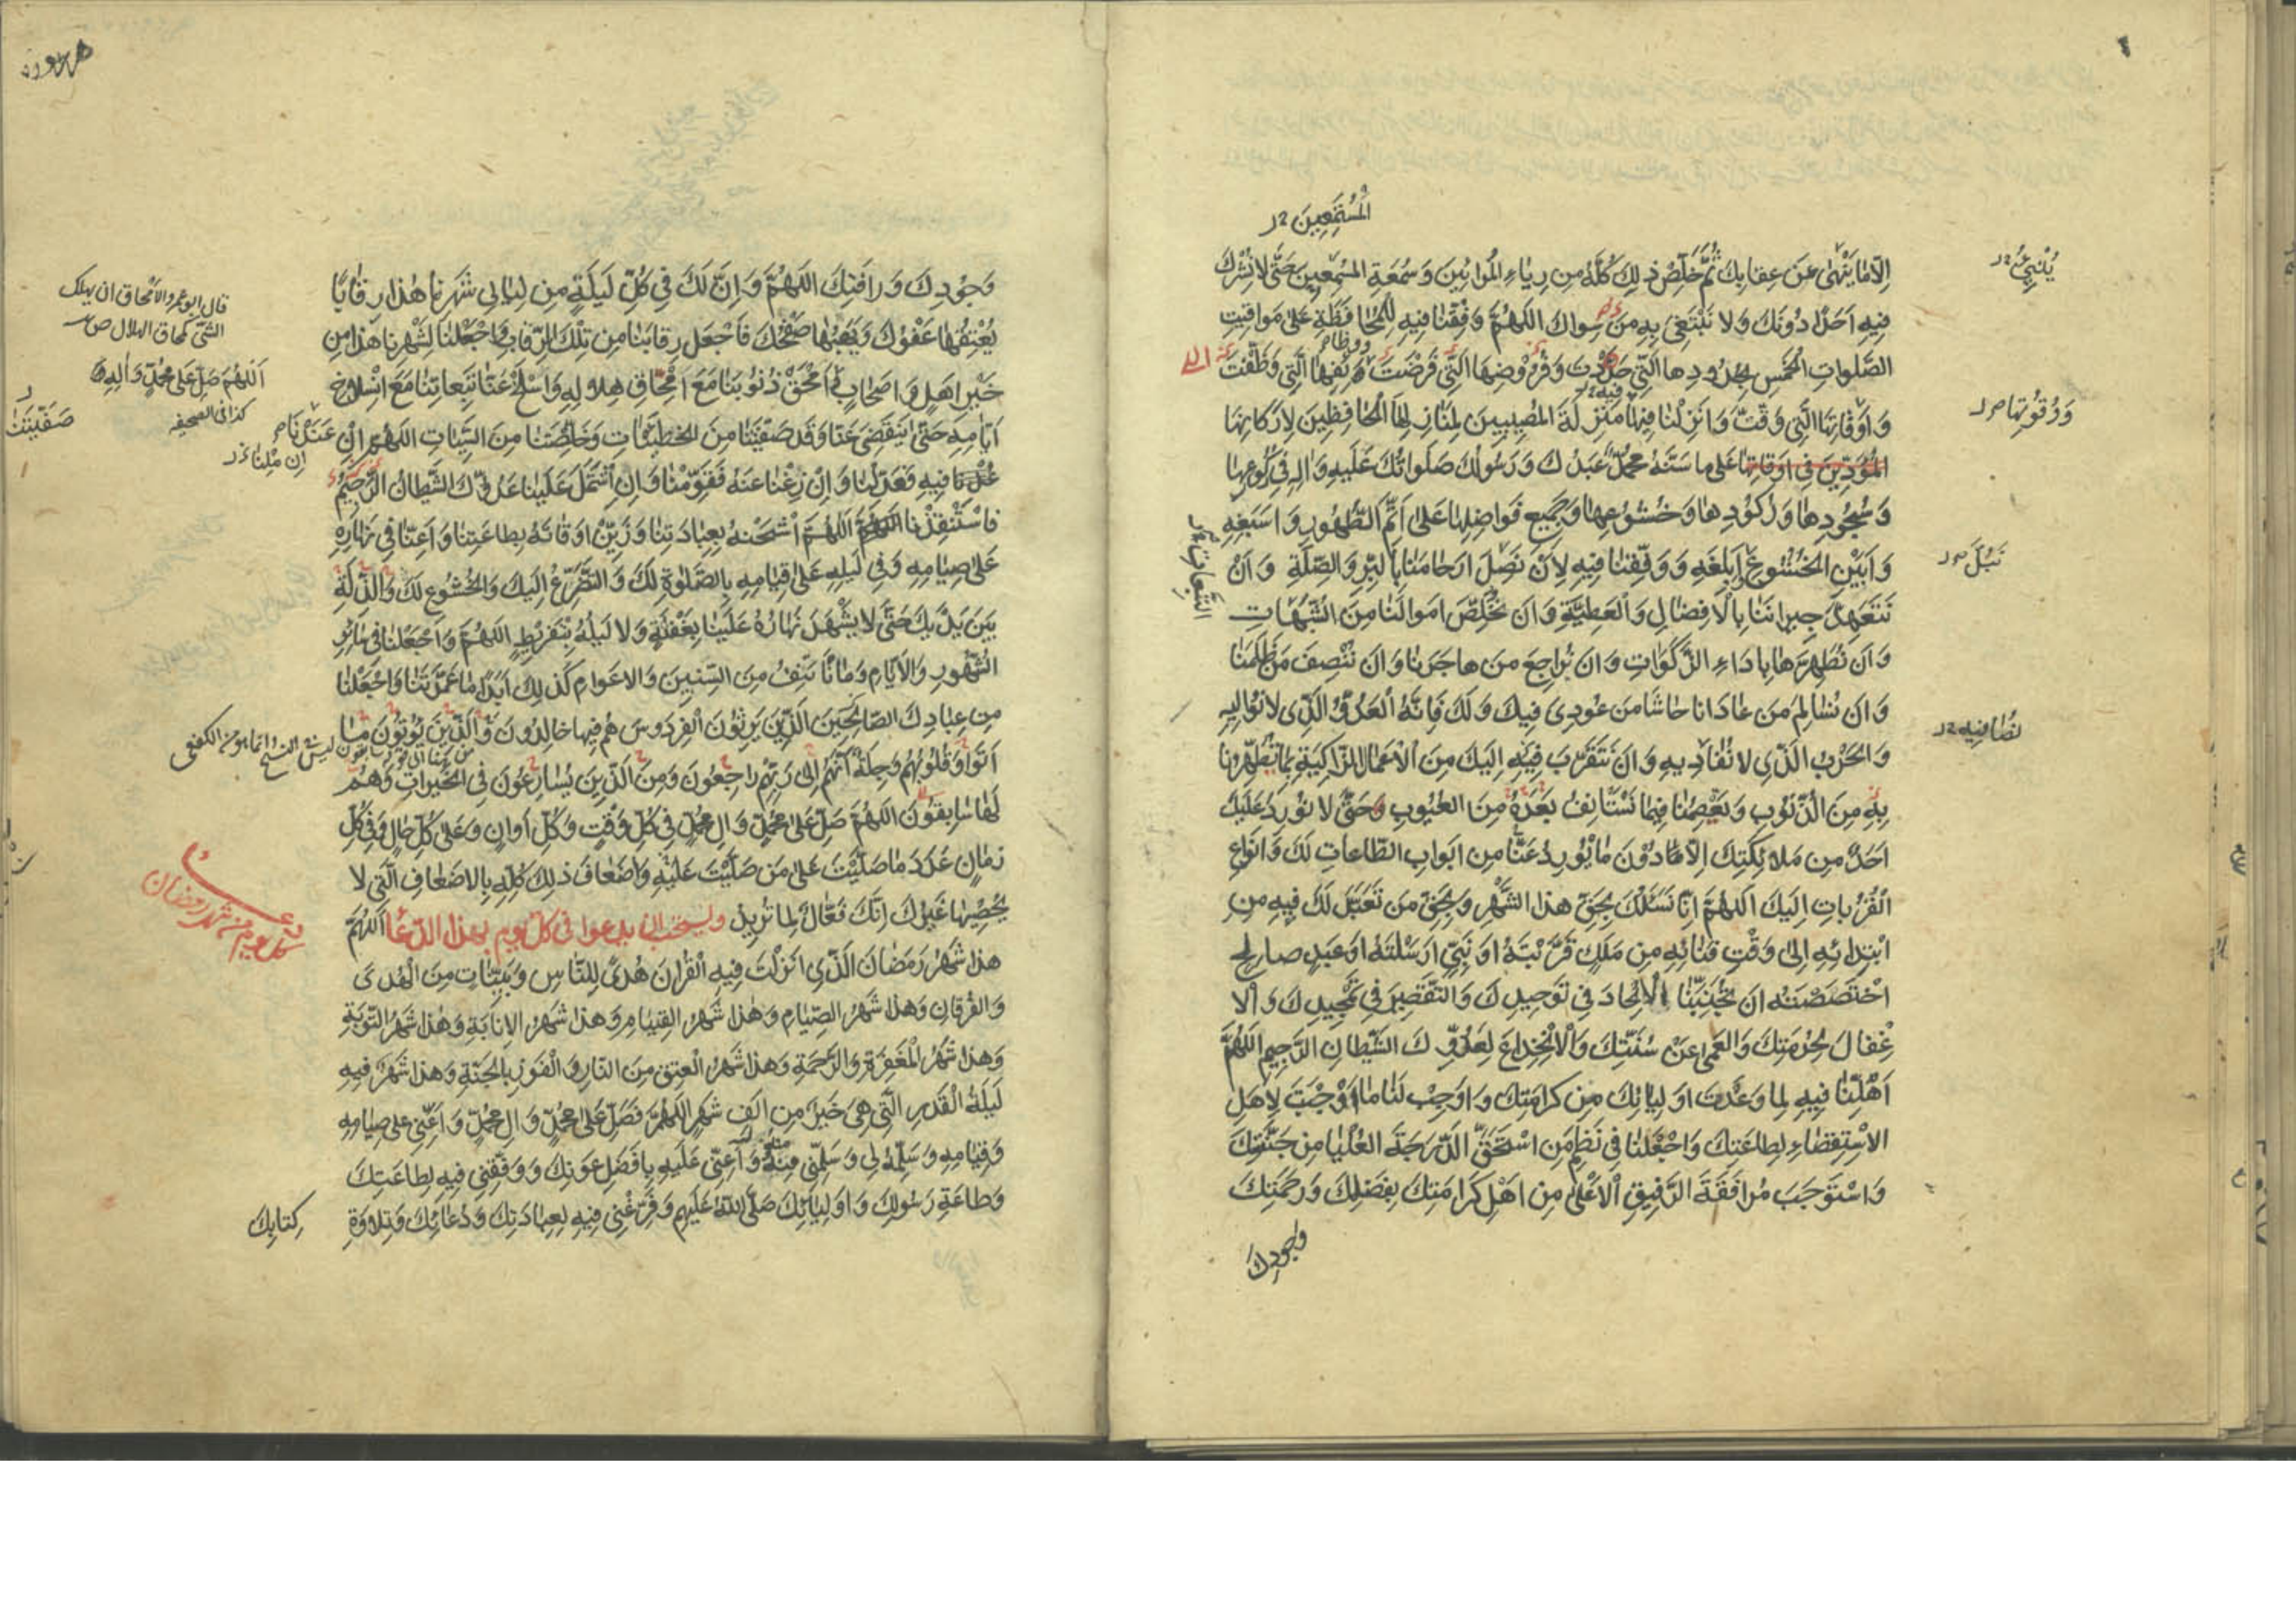 المُسْتَمِعِينَ
اِلّا ما يَنْهىٰ عَنْ عِقابِكَ ثُمَّ خَلِّصْ ذلِكَ كُلَّهُ مِن رِياءِ المُرائينَ وَسُمْعَةِ المُسْمِعينَ حَتّى لا نُشْرِكَ
فيهِ اَحَدًا دُونَكَ وَلا نَبْتَغِىَ بِهِ مِن سِواكَ اللهُمَّ وَفِّقْنا فيهِ لِلْمُحافَظَةِ عَلى مَواقيتِ
الصَّلَواتِ الخَمْسِ بِحُدُودِها الَّتى حَدَّدْتَ وَفُرُوضِهَا الَّتى فَرَضْتَ وَ الَّتى وَظَّفْتَ
وَاَوْقاتِهَا الَّتى وَقَّتَّ وَاَنْزِلْنا فيها مَنْزِلَةَ المُصيبينَ لِمَنازِلِهَا الْحافِظينَ لِاَرْكانِها
المُؤَدّينَ فى اَوْقاتِها عَلى ما سَنَّهُ مُحَمَّدٌ عَبْدُكَ وَرَسُولُكَ صَلَواتُكَ عَلَيهِ وَالِهِ فى رُكُوعِها
وَسُجُودِها وَرُكُودِها وَخُشُوعِها وَجَميعِ فَواضِلِها عَلى اَتَمِّ الطُّهُورِ وَاَسْبَغِهِ
وَاَبْيَنِ الخُشُوعِ وَاَبْلَغِهِ وَوَفِّقْنا فيهِ لِاَنْ نَصِلَ اَرْحامَنا بِالبِرِّ وَالصِّلَةِ وَاَنْ
نَتَعَهَّدَ جيرانَنا بِالْاِفْضالِ وَالْعَطِيَّةِ وَاَن نُخَلِّصَ اَمْوالَنا مِنَ الشُّبُهاتِ
التَّبِعاتِ
وَاَن نُطَهِّرَها بِاَداءِ الزَّكَواتِ وَاَن نُراجِعَ مَن هاجَرَنا وَاَن نُنْصِفَ مَن ظَلَمَنا
وَاَن نُسالِمَ مَن عادَانا حاشا مَن عُودِىَ فيكَ وَلَكَ فَاِنَّهُ الْعَدُوُّ الَّذى لا نُواليهِ
وَالحِزْبُ الَّذى لا نُصافيهِ وَاَن نَتَقَرَّبَ فيهِ اِلَيكَ مِنَ الْاَعْمالِ الزّاكِيَةِ بِما تُطَهِّرُنا
بِهِ مِنَ الذُّنُوبِ وَتَعْصِمُنا فيما نَسْتَانِفُ بَعْدَهُ مِنَ العُيُوبِ حَتّى لا يُورِدَ عَلَيكَ
اَحَدٌ مِن مَلائِكَتِكَ اِلّا ما دُونَ ما يُورِدُ عَنّا مِن اَبْوابِ الطّاعاتِ لَكَ وَاَنْواعِ
الْقُرُباتِ اِلَيكَ اَللهُمَّ اِنّا نَسْئَلُكَ بِحَقِّ هذَا الشَّهْرِ وَبِحَقِّ مَن تَعَبَّدَ لَكَ فيهِ مِن
ابْتِدائِهِ اِلى وَقْتِ فَنائِهِ مِن مَلَكٍ قَرَّبْتَهُ اَوْ نَبِىٍّ اَرْسَلْتَهُ اَوْ عَبْدٍ صالِحٍ
اخْتَصَصْتَهُ اَن تُجَنِّبَنَا الْاِلْحادَ فى تَوْحيدِكَ وَالتَّقْصيرَ فى تَمْجيدِكَ وَالْا
غْفالَ لِحُرْمَتِكَ وَالعَمى عَنْ سُنَّتِكَ وَالْاِنْخِداعَ لِعَدُوِّكَ الشَّيْطانِ الرَّجيمِ اَللهُمَّ
اَهِّلْنا فيهِ لِما وَعَدْتَ اَوْلِيائَكَ مِن كَرامَتِكَ وَاَوْجِبْ لَنا ما اَوْجَبْتَ لِاَهْلِ
الاِسْتِقْصاءِ لِطاعَتِكَ وَاجْعَلْنا فى نَظْمِ مَنِ اسْتَحَقَّ الدَّرَجَةَ العُلْيا مِن جَنَّتِكَ
وَاسْتَوْجَبَ مُرافَقَةَ الرَّفيقِ الْاَعْلى مِن اَهْلِ كَرامَتِكَ بِفَضْلِكَ وَرَحْمَتِكَ
وَجُودِكَ
وَجُودِكَ وَرَافَتِكَ اللهُمَّ وَاِنَّ لَكَ فى كُلِّ لَيْلَةٍ مِن لَيالى شَهْرِنا هذا رِقابًا
يُعْتِقُها عَفْوُكَ وَيَهَبُها صَفْحُكَ فَاجْعَل رِقابَنا مِن تِلْكَ الرِّقابِ وَاجْعَلْنا لِشَهْرِنا هذا مِن
خَيْرِ اَهْلٍ وَاَصْحابٍ وَامْحَقْ ذُنُوبَنا مَعَ امْحاقِ هِلالِهِ وَاسْلَخْ عَنّا تَبِعاتِنا مَعَ انْسِلاخِ
اَيّامِهِ حَتّى يَنْقَضِىَ عَنّا وَقَدْ صَفَّيْتَنا مِنَ الخَطيئاتِ وَخَلَّصْتَنا مِنَ السَّيِّئاتِ اللهُمَّ اِنْ
عَدَلْنا فيهِ فَعَدِّلْنا وَاِنْ زِغْنا عَنْهُ فَقَوِّمْنا وَاِنِ اشْتَمَلَ عَلَيْنا عَدُوُّكَ الشَّيْطانُ الرَّجيمُ
فَاسْتَنْقِذْنا اَللهُمَّ اشْحَنْهُ بِعِبادَتِنا وَزَيِّنْ اَوْقاتَهُ بِطاعَتِنا وَاَعِنّا فى نَهارِهِ
عَلى صِيامِهِ وَفى لَيْلِهِ عَلى قِيامِهِ بِالصَّلوةِ لَكَ وَالتَّضَرُّعِ اِلَيكَ وَالخُشُوعِ لَكَ وَالذِّلَّةِ
بَيْنَ يَدَيكَ حَتّى لا يَشْهَدَ نَهارُهُ عَلَيْنا بِغَفْلَةٍ وَلا لَيْلُهُ بِتَفْريطٍ اللهُمَّ وَاجْعَلْنا فى سائِرِ
الشُّهُورِ وَالاَيّامِ وَما نَاتَنِفُ مِنَ السِّنينَ وَالاَعْوامِ كَذلِكَ اَبَدًا ما عَمَّرْتَنا وَاجْعَلْنا
مِن عِبادِكَ الصّالِحينَ الَّذينَ يَرِثُونَ الْفِرْدَوْسَ هُمْ فيها خالِدُونَ وَالَّذينَ يُؤْتُونَ ما
اتَوْا وَقُلُوبُهُمْ وَجِلَةٌ اَنَّهُمْ اِلى رَبِّهِمْ راجِعُونَ وَمِنَ الَّذينَ يُسارِعُونَ فى الخَيْراتِ وَهُمْ
لَها سابِقُونَ اللهُمَّ صَلِّ عَلى مُحَمَّدٍ وَالِ مُحَمَّدٍ فى كُلِّ وَقْتٍ وَكُلِّ اَوانٍ وَعَلى كُلِّ حالٍ وَفى كُلِّ
زَمانٍ عَدَدَ ما صَلَّيْتَ عَلى مَن صَلَّيْتَ عَلَيْهِ وَاَضْعافَ ذلِكَ كُلِّهِ بِالاَضْعافِ الَّتى لا
يُحْصيها غَيْرُكَ اِنَّكَ فَعّالٌ لِما تُريدُ ويستحب ان يدعوا فى كل يوم بهذا الدعا اَللهُمَّ
هذا شَهْرُ رَمَضانَ الَّذى اَنْزَلْتَ فيهِ الْقُرْانَ هُدًى لِلنّاسِ وَبَيِّناتٍ مِنَ الْهُدى
وَالفُرْقانِ وَهذا شَهْرُ الصِّيامِ وَهذا شَهْرُ القِيامِ وَهذا شَهْرُ الاِنابَةِ وَهذا شَهْرُ التَّوْبَةِ
وَهذا شَهْرُ الْمَغْفِرَةِ وَالرَّحْمَةِ وَهذا شَهْرُ الْعِتْقِ مِنَ النّارِ وَالْفَوْزِ بِالجَنَّةِ وَهذا شَهْرٌ فيهِ
لَيْلَةُ الْقَدْرِ الَّتى هِىَ خَيْرٌ مِن اَلْفِ شَهْرٍ اللهُمَّ فَصَلِّ عَلى مُحَمَّدٍ وَالِ مُحَمَّدٍ وَاَعِنّى عَلى صِيامِهِ
وَقِيامِهِ وَسَلِّمْهُ لى وَسَلِّمْنى مِنْهُ وَاَعِنّى عَلَيهِ بِاَفْضَلِ عَوْنِكَ وَوَفِّقْنى فيهِ لِطاعَتِكَ
وَطاعَةِ رَسُولِكَ وَاَوْلِيائِكَ صَلَّى اللهُ عَلَيهِم وَفَرِّغْنى فيهِ لِعِبادَتِكَ وَدُعائِكَ وَتِلاوَةِ
كِتابِكَ
قال ابوعمرو الامحاق ان يهلك
الشئ كمحاق الهلال ص
اَللهُمَّ صَلِّ عَلى مُحَمَّدٍ وَالِهِ
كذا فى الصحيفه